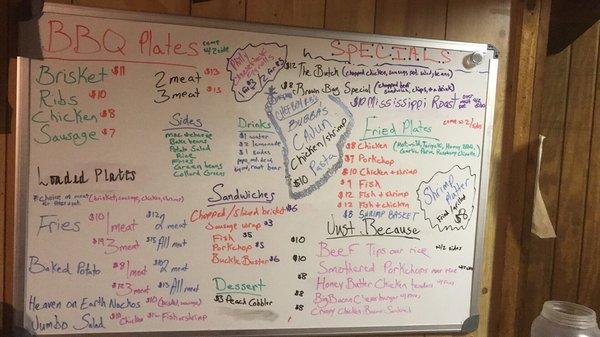 BBQ Plates come w/2 side
Brisket $11
Ribs $10
Chicken $8
Sausage $7
2 meat $13
3 meat $15
Sides
mac & cheese
Baked beans
Potato Salad
Rice
Fries
Green beans
Collard Greens
Drinks
$1 water
$2 lemonade
$1 sodas
Loaded Plates
Fries $10/1 meat $12/2 meat
3 meat $15 All meat
Baked Potato $8/1 meat $10/2 meat
$12 3 meat $15 All meat
Heaven on Earth Nachos $10
Jumbo Salad $10 Chicken $12 Fish or shrimp
Sandwiches
Chopped/sliced brisket $6
Sausage wrap $3
Fish $5
Porkchop $5
Buckle Buster $6
Dessert
$3 Peach Cobbler
Philly
CHEF BOYER
BUBBA'S
CAJUN
Chicken/shrimp
Pasta
$10
SPECIALS
$12 The Butch (chopped chicken, sausage, pot. salad, beans)
$8 Brown Bag Special (chopped beef sandwich, chips, & a drink)
$10 Mississippi Roast
Fried Plates come w/2 sides
$8 Chicken
$7 Porkchop
$10 Chicken & shrimp
$9 Fish
$12 Fish & shrimp
$12 Fish & chicken
$8 SHRIMP BASKET
Shrimp Platter
Fried/grilled
$8
Just Because w/2 sides
$10 Beef Tips over rice
$10 Smothered Porkchops over rice
$8 Honey Butter Chicken tenders
$8 Big Bacon Cheeseburger w/fries
$8 Crispy Chicken Bacon Sandwich